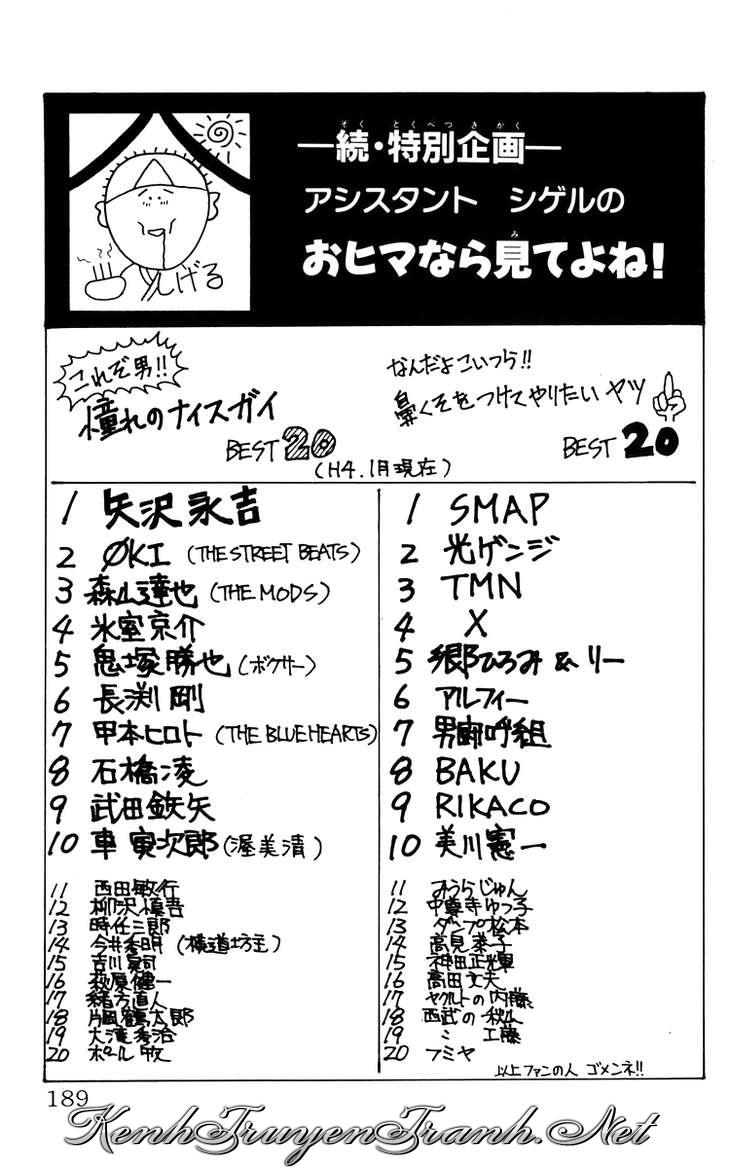 ―続・特別企画―
ぞく とくべつ きかく
アシスタント シゲルの
おヒマなら見てよね!
み
しげる
これぞ男!!
憧れのナイスガイ
BEST 20
なんだよこいつら!!
鼻くそをつけてやりたいヤツ
BEST 20
(H4.1月現在)
1 矢沢永吉
2 ØKI (THE STREET BEATS)
3 森山達也 (THE MODS)
4 氷室京介
5 鬼塚勝也 (ボクサー)
6 長渕剛
7 甲本ヒロト (THE BLUE HEARTS)
8 石橋凌
9 武田鉄矢
10 車寅次郎 (渥美清)
11 西田敏行
12 柳沢慎吾
13 時任三郎
14 今井秀明 (横道坊主)
15 吉川晃司
16 萩原健一
17 緒方直人
18 片岡鶴太郎
19 大滝秀治
20 ポール牧
1 SMAP
2 光ゲンジ
3 TMN
4 X
5 郷ひろみ & リー
6 アルフィー
7 男闘呼組
8 BAKU
9 RIKACO
10 美川憲一
11 みうらじゅん
12 中尊寺ゆつ子
13 ダンプ松本
14 高見恭子
15 神田正輝
16 高田文夫
17 ヤクルトの内藤
18 西武の秋山
19 〃 工藤
20 フミヤ
以上ファンの人 ゴメンネ!!
189
KenhTruyenTranh.Net